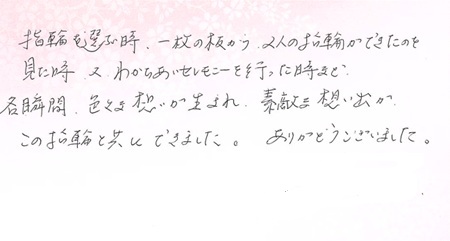 指輪を選ぶ時、一枚の板から、2人の指輪ができたのを
見た時 又、わかちあいセレモニーを行った時など
各瞬間、色々な想いが生まれ、素敵な想い出が
この指輪と共にできました。 ありがとうございました。